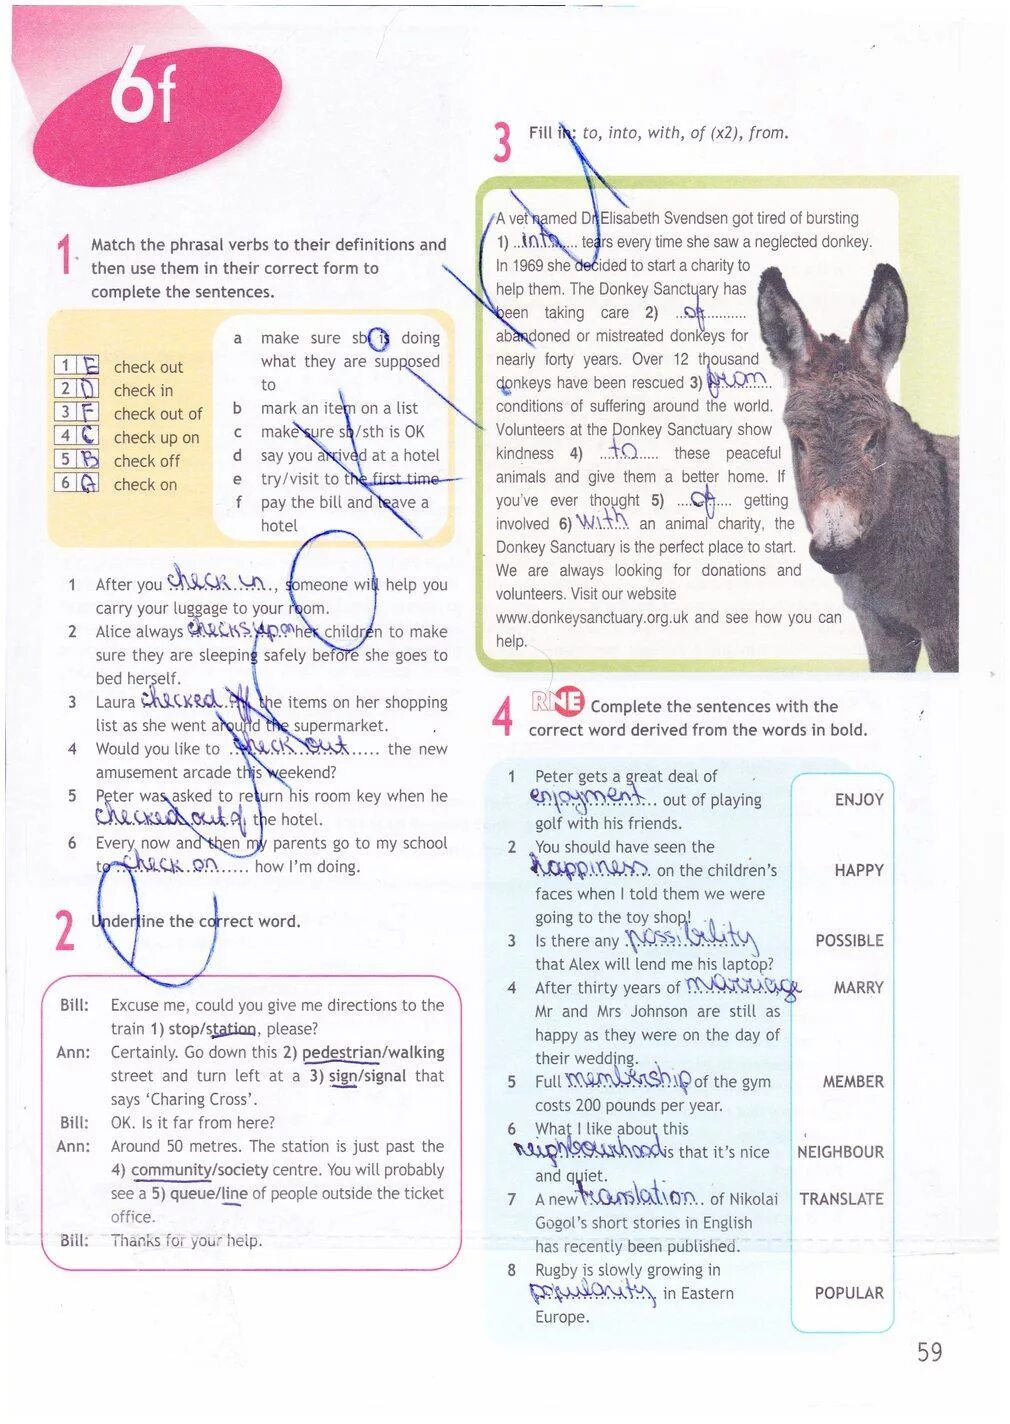 6f
1 Match the phrasal verbs to their definitions and
then use them in their correct form to
complete the sentences.
1 E check out
2 D check in
3 F check out of
4 C check up on
5 B check off
6 A check on
a make sure sb is doing
what they are supposed
to
b mark an item on a list
c make sure sb/sth is OK
d say you arrived at a hotel
e try/visit to the first time
f pay the bill and leave a
hotel
1 After you check in, someone will help you
carry your luggage to your room.
2 Alice always checks up on her children to make
sure they are sleeping safely before she goes to
bed herself.
3 Laura checked off the items on her shopping
list as she went around the supermarket.
4 Would you like to check out the new
amusement arcade this weekend?
5 Peter was asked to return his room key when he
checked out of the hotel.
6 Every now and then my parents go to my school
to check on how I'm doing.
2 Underline the correct word.
Bill: Excuse me, could you give me directions to the
train 1) stop/station, please?
Ann: Certainly. Go down this 2) pedestrian/walking
street and turn left at a 3) sign/signal that
says ‘Charing Cross’.
Bill: OK. Is it far from here?
Ann: Around 50 metres. The station is just past the
4) community/society centre. You will probably
see a 5) queue/line of people outside the ticket
office.
Bill: Thanks for your help.
3 Fill in: to, into, with, of (x2), from.
A vet named Dr Elisabeth Svendsen got tired of bursting
1) into tears every time she saw a neglected donkey.
In 1969 she decided to start a charity to
help them. The Donkey Sanctuary has
been taking care 2) of
abandoned or mistreated donkeys for
nearly forty years. Over 12 thousand
donkeys have been rescued 3) from
conditions of suffering around the world.
Volunteers at the Donkey Sanctuary show
kindness 4) to these peaceful
animals and give them a better home. If
you've ever thought 5) of getting
involved 6) with an animal charity, the
Donkey Sanctuary is the perfect place to start.
We are always looking for donations and
volunteers. Visit our website
www.donkeysanctuary.org.uk and see how you can
help.
4 RNE Complete the sentences with the
correct word derived from the words in bold.
1 Peter gets a great deal of
enjoyment out of playing ENJOY
golf with his friends.
2 You should have seen the
happiness on the children's HAPPY
faces when I told them we were
going to the toy shop!
3 Is there any possibility POSSIBLE
that Alex will lend me his laptop?
4 After thirty years of marriage MARRY
Mr and Mrs Johnson are still as
happy as they were on the day of
their wedding.
5 Full membership of the gym MEMBER
costs 200 pounds per year.
6 What I like about this
neighbourhood is that it's nice NEIGHBOUR
and quiet.
7 A new translation of Nikolai TRANSLATE
Gogol's short stories in English
has recently been published.
8 Rugby is slowly growing in
popularity in Eastern POPULAR
Europe.
59